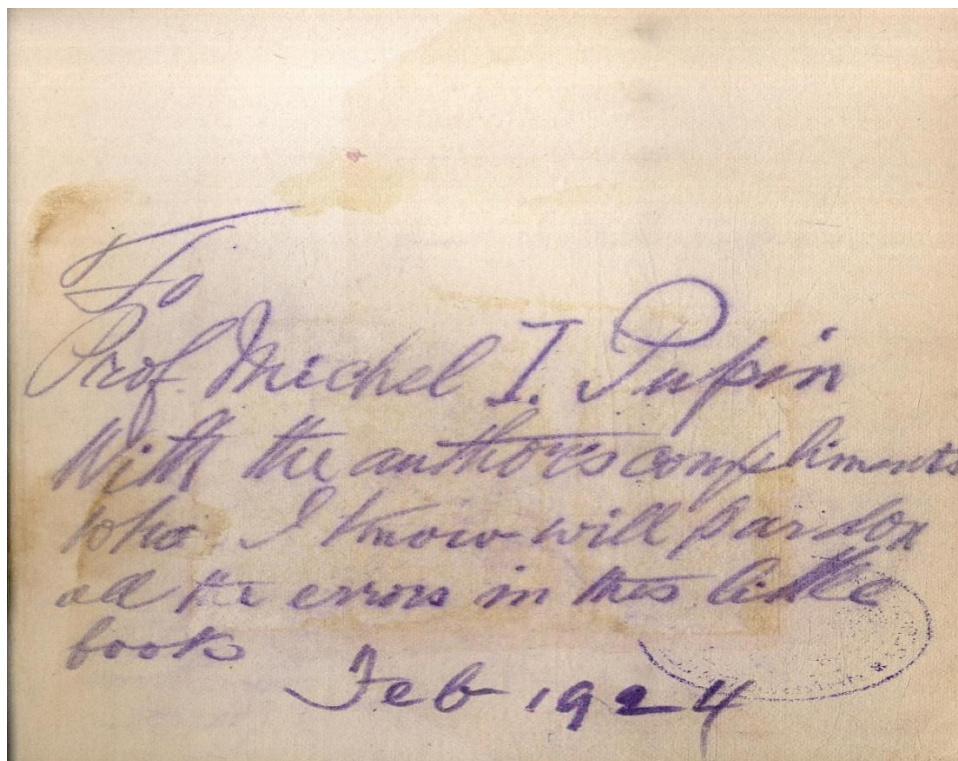 To
Prof. Michel I. Pupin
With the authors compliments
who I know will pardon
all the errors in this little
book
Feb 1924